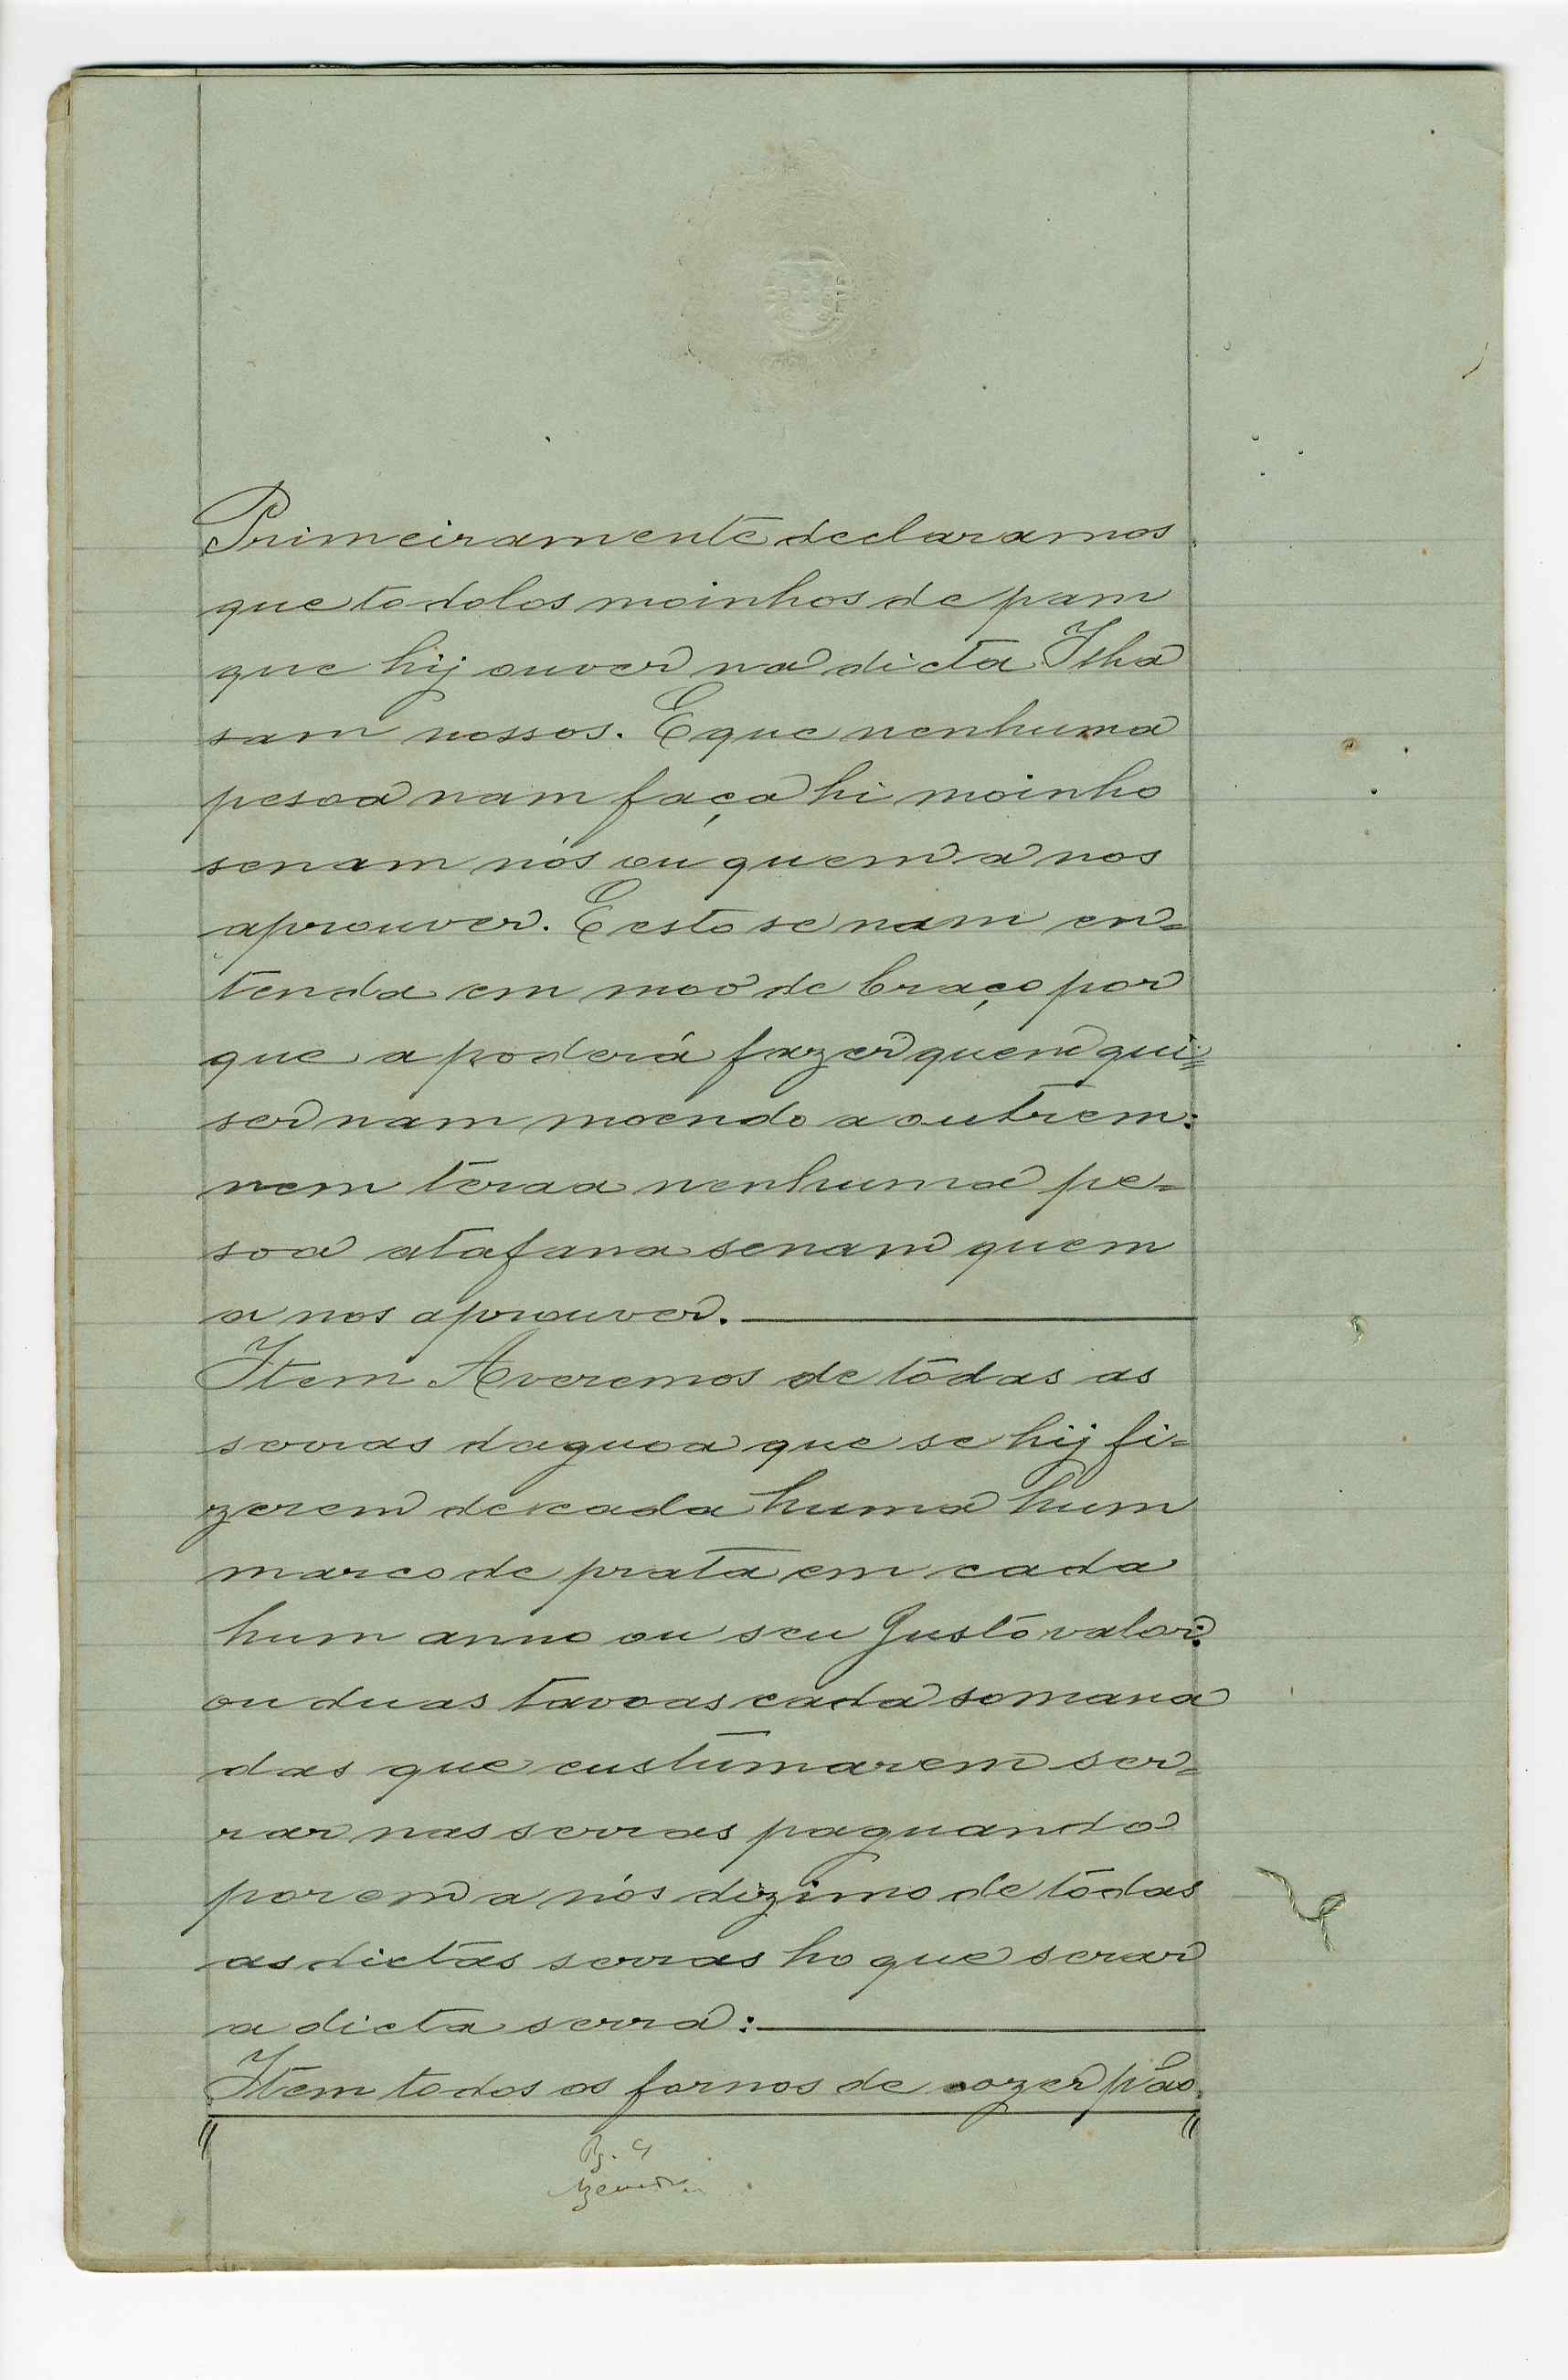 Primeiramente declaramos
que todolos moinhos de pam
que hij ouver na dicta Ilha
sam nossos. E que nenhuma
pesoa nam faça hi moinho
senam nós ou quem a nos
aprouver. E esto se nam en=
tenda em moo de braço por
que a poderá fazer quem qui=
ser nam moendo a outrem:
nem teraa nenhuma pe=
soa atafana senam quem
a nos aprouver.
Item Averemos de todas as
serras daguoa que se hij fi=
zerem de cada huma hum
marco de prata em cada
hum anno ou seu Justo valor:
ou duas tavoas cada somana
das que custumarem ser=
rar nas serras paguando
porem a nós dizimo de todas
as dictas serras ho que serar
a dicta serra:
Item todos os fornos de cozer pão